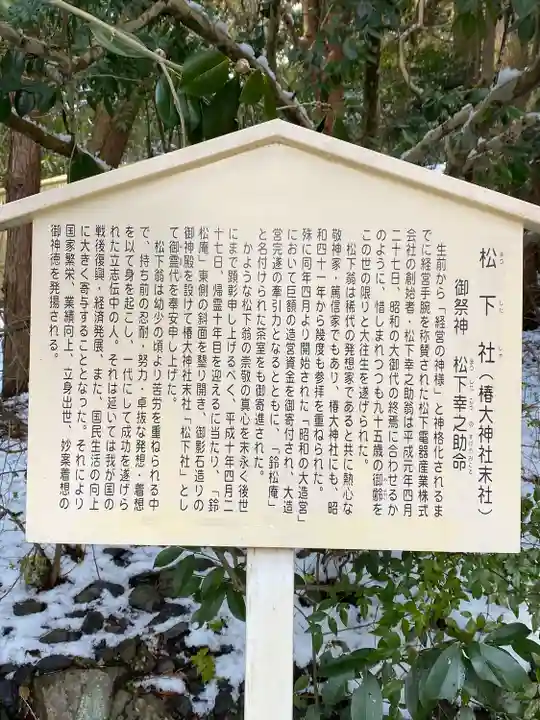 松下社（椿大神社末社）
まつしたしゃ
御祭神　松下幸之助命
まつしたこうのすけのみこと
生前から「経営の神様」と神格化されるま
でに経営手腕を称賛された松下電器産業株式
会社の創始者・松下幸之助翁は平成元年四月
二十七日、昭和の大御代の終焉に合わせるか
のように、惜しまれつつも九十五歳の御齢を
この世の限りと大往生を遂げられた。
松下翁は稀代の発想家であると共に熱心な
敬神家・篤信家でもあり、椿大神社にも、昭
和四十一年から幾度も参拝を重ねられた。
殊に同年四月より開始された「昭和の大造営」
において巨額の造営資金を御寄付され、大造
営完遂の牽引力となるとともに、「鈴松庵」
と名付けられた茶室をも御寄進された。
かような松下翁の崇敬の真心を末永く後世
にまで顕彰申し上げるべく、平成十年四月二
十七日、帰霊十年目を迎えるに当たり、「鈴
松庵」東側の斜面を鑿り開き、御影石造りの
御神殿を設けて椿大神社末社「松下社」とし
て御霊代を奉安申し上げた。
松下翁は幼少の頃より苦労を重ねられる中
で、持ち前の忍耐・努力・卓抜な発想・着想
を以て身を起こし、一代にして成功を遂げら
れた立志伝中の人。それは延いては我が国の
戦後復興・経済発展、また、国民生活の向上
に大きく寄与することとなった。それにより
国家繁栄、業績向上、立身出世、妙案着想の
御神徳を発揚される。